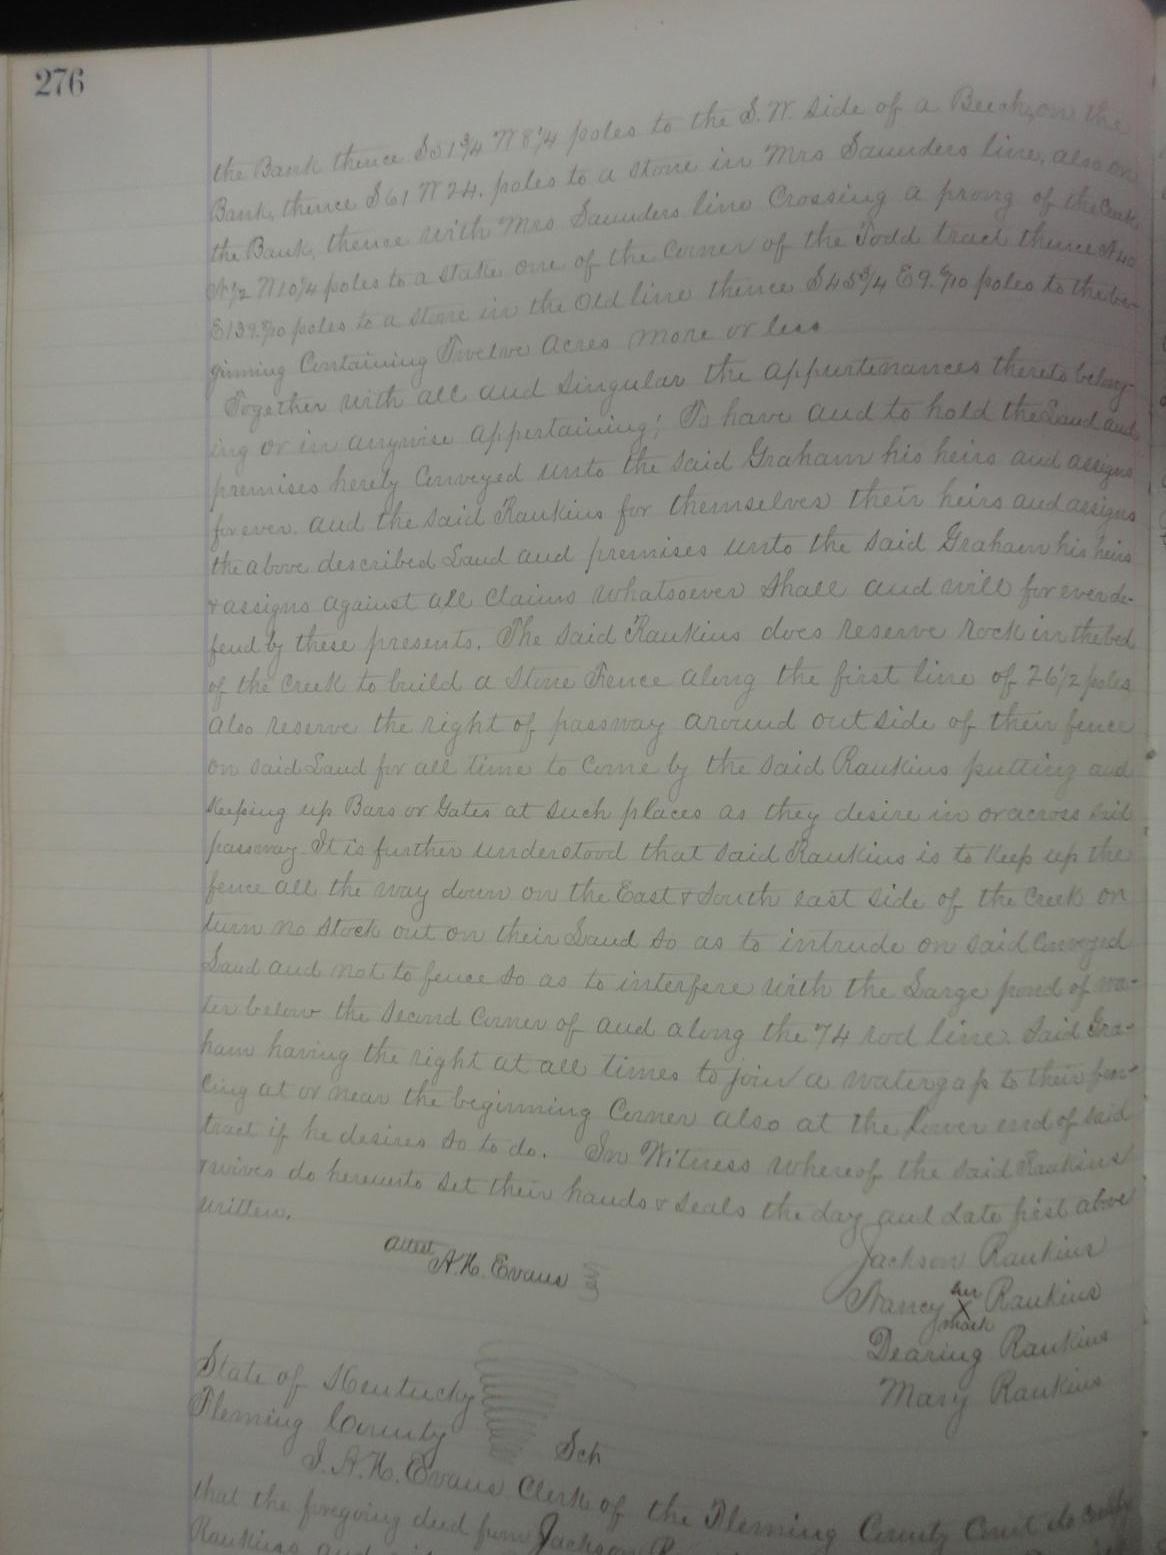 276
the Bank thence S51¾ W 8¼ poles to the S.W. side of a Beech, on the
Bank, thence S61 W 24. poles to a stone in Mrs Saunders line, also on
the Bank, thence with Mrs Saunders line Crossing a prong of the Creek
W 10¼ poles to a stake one of the corner of the Todd tract thence
E139 poles to a stone in the Old line thence S45¾ E9.6/10 poles to the be-
ginning Containing Twelve Acres more or less
Together with all and singular the appurtenances thereto belong-
ing or in anywise appertaining; To have and to hold the Land and
premises herely Conveyed unto the said Graham his heirs and assigns
forever. and the said Rankins for themselves their heirs and assigns
the above described Land and premises unto the said Graham his heirs
& assigns against all claims whatsoever shall and will forever de-
fend by these presents. The said Rankins does reserve rock in the bed
of the creek to build a stone Fence along the first line of 26½ poles
Also reserve the right of passway around outside of their fence
on said Land for all time to come by the said Rankins putting and
keeping up Bars or Gates at such places as they desire in or across said
passway. It is further understood that said Rankins is to keep up the
fence all the way down on the East & South east side of the creek on
turn no stock out on their Land so as to intrude on said Conveyed
Land and not to fence so as to interfere with the Large pond of wa-
ter below the second corner of and along the 74 rod line. Said Gra-
ham having the right at all times to join a watergap to their fen-
cing at or near the beginning Corner also at the lower end of said
tract if he desires so to do. In Witness whereof the said Rankins
& wives do hereunto set their hands & seals the day and date first above
written.
attest A.K. Evans
Jackson Rankins
Nancy her X mark Rankins
Dearing Rankins
Mary Rankins
State of Kentucky
Fleming County Sct
I. A.K. Evans Clerk of the Fleming County Court do certify
that the foregoing deed from Jackson
Rankins and